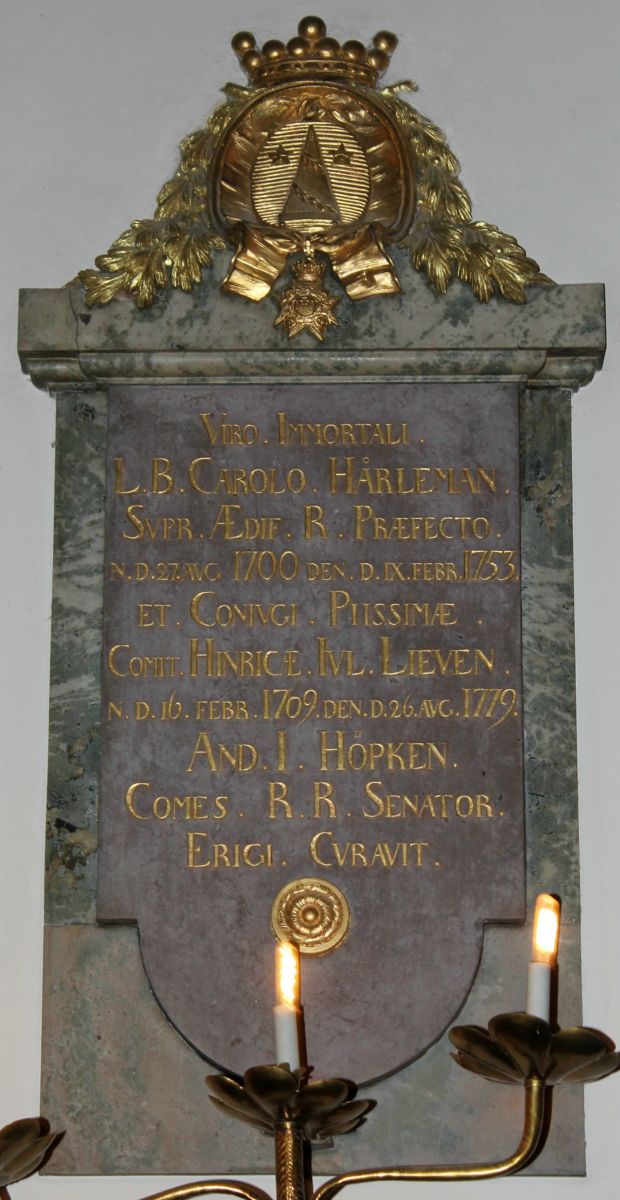 VIRO. IMMORTALI.
L.B. CAROLO. HÅRLEMAN.
SVPR. ÆDIF. R. PRÆFECTO.
N.D.27.AUG 1700 DEN. D.IX.FEBR.1753.
ET. CONIVGI. PIISSIMÆ.
COMIT. HINRICÆ. IVL. LIEVEN.
N.D.16. FEBR.1709.DEN.D.26.AVG.1779.
AND. I. HÖPKEN.
COMES. R.R. SENATOR.
ERIGI. CVRAVIT.